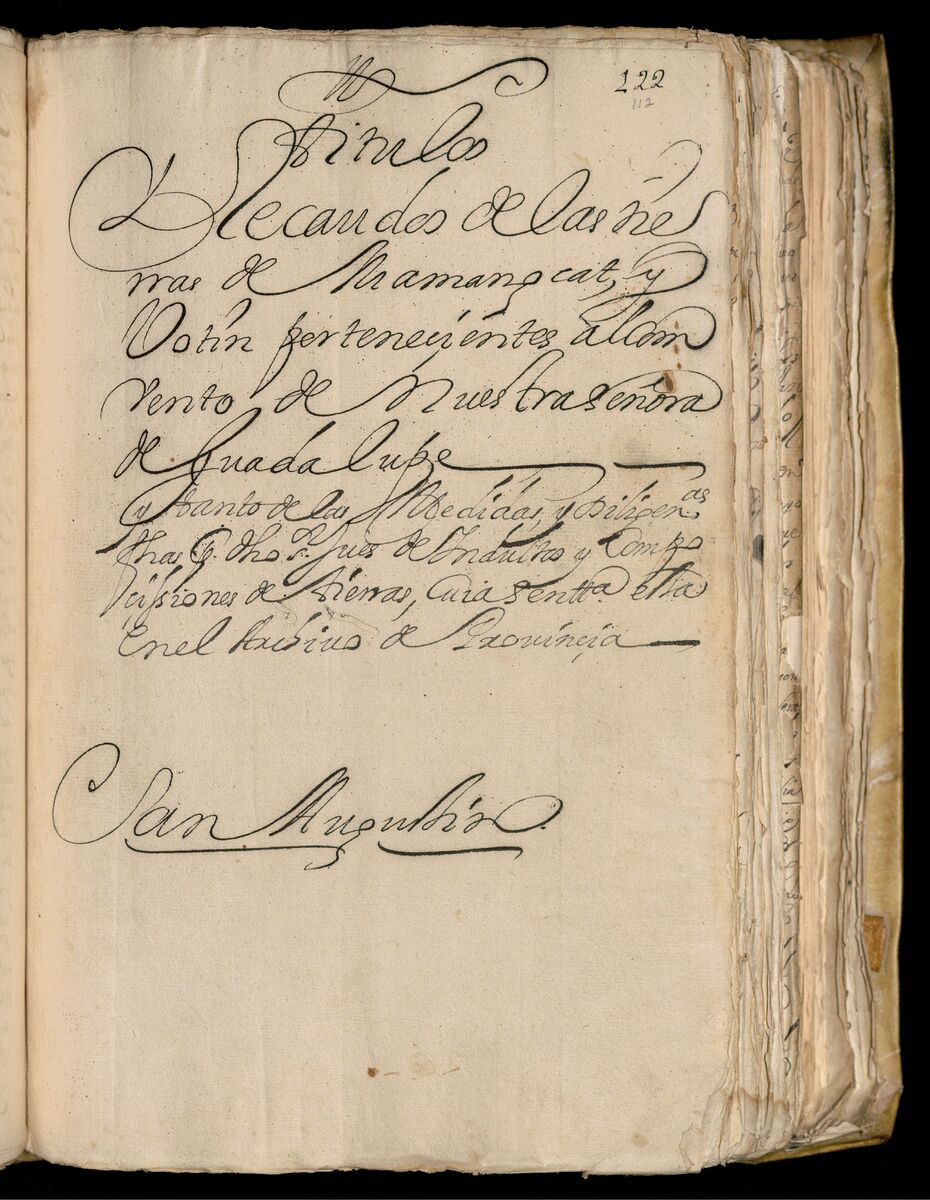 122
112
titulos
Y Recaudos de las tie
rras de Mamangcat, y
Votin perteneçientes al Com
vento de Nuestra Señora
de Guadalupe
y tanto de las Medidas, y Diligen.as
thas P. dho S.r Jues de Indultos y Compo
çissiones de tierras, Cuia Sentt.a esta
En el Archivo de Provinçia
San Augustin.